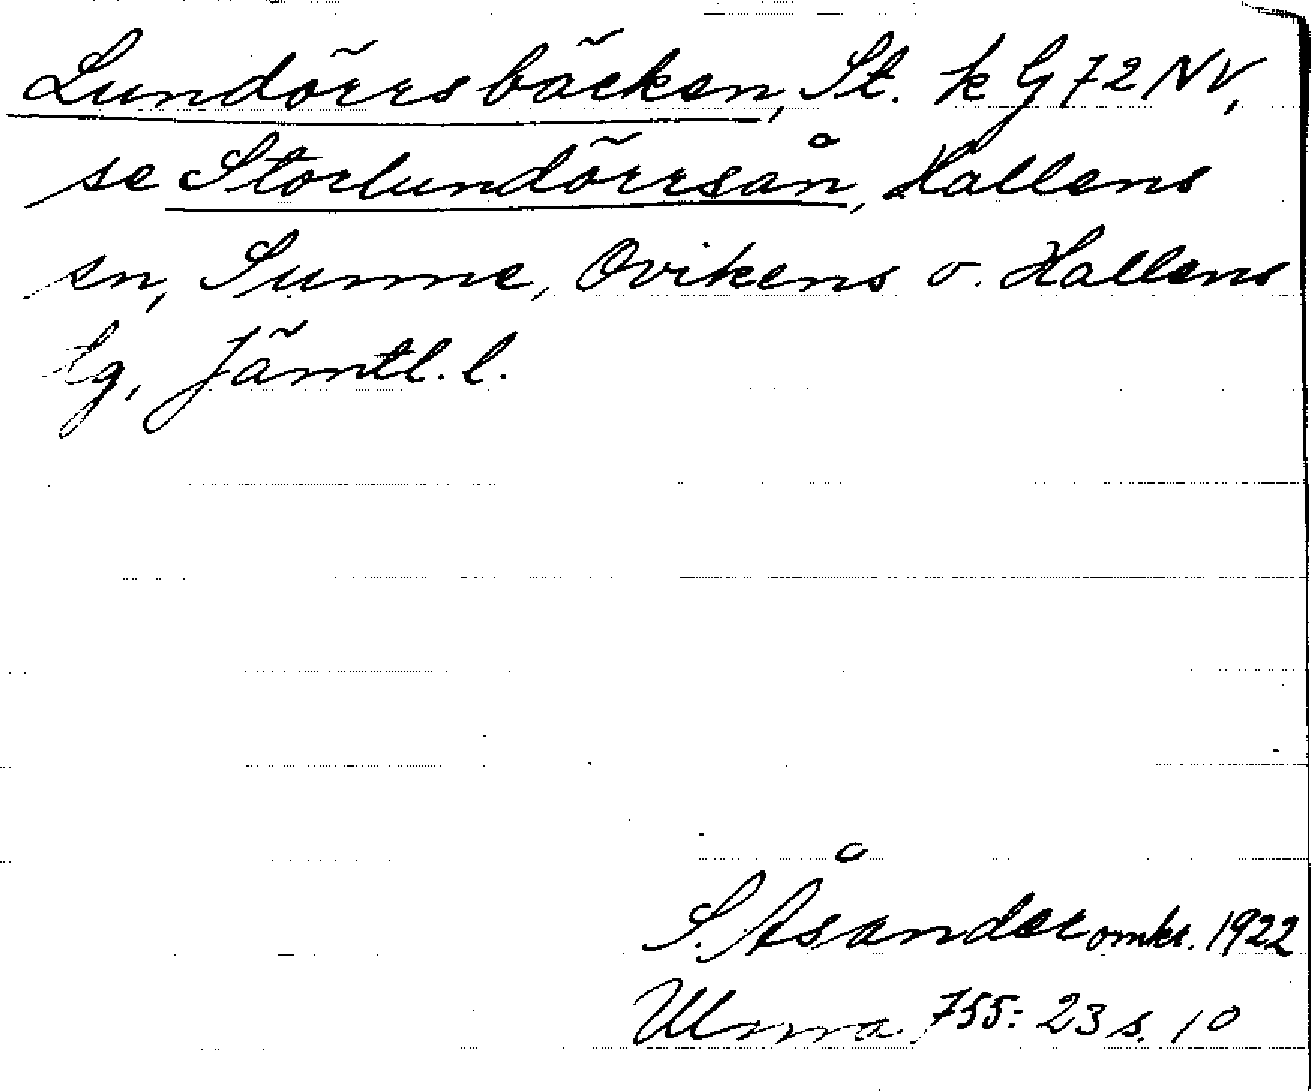 Lundörrsbäcken, St. k G 72 NV,
se Storlundörrsån, Hallens
sn, Sunne, Ovikens o. Hallens
tg, Jämtl. l.
S. Åsander omkr. 1922
Ulma 755: 23 s. 10